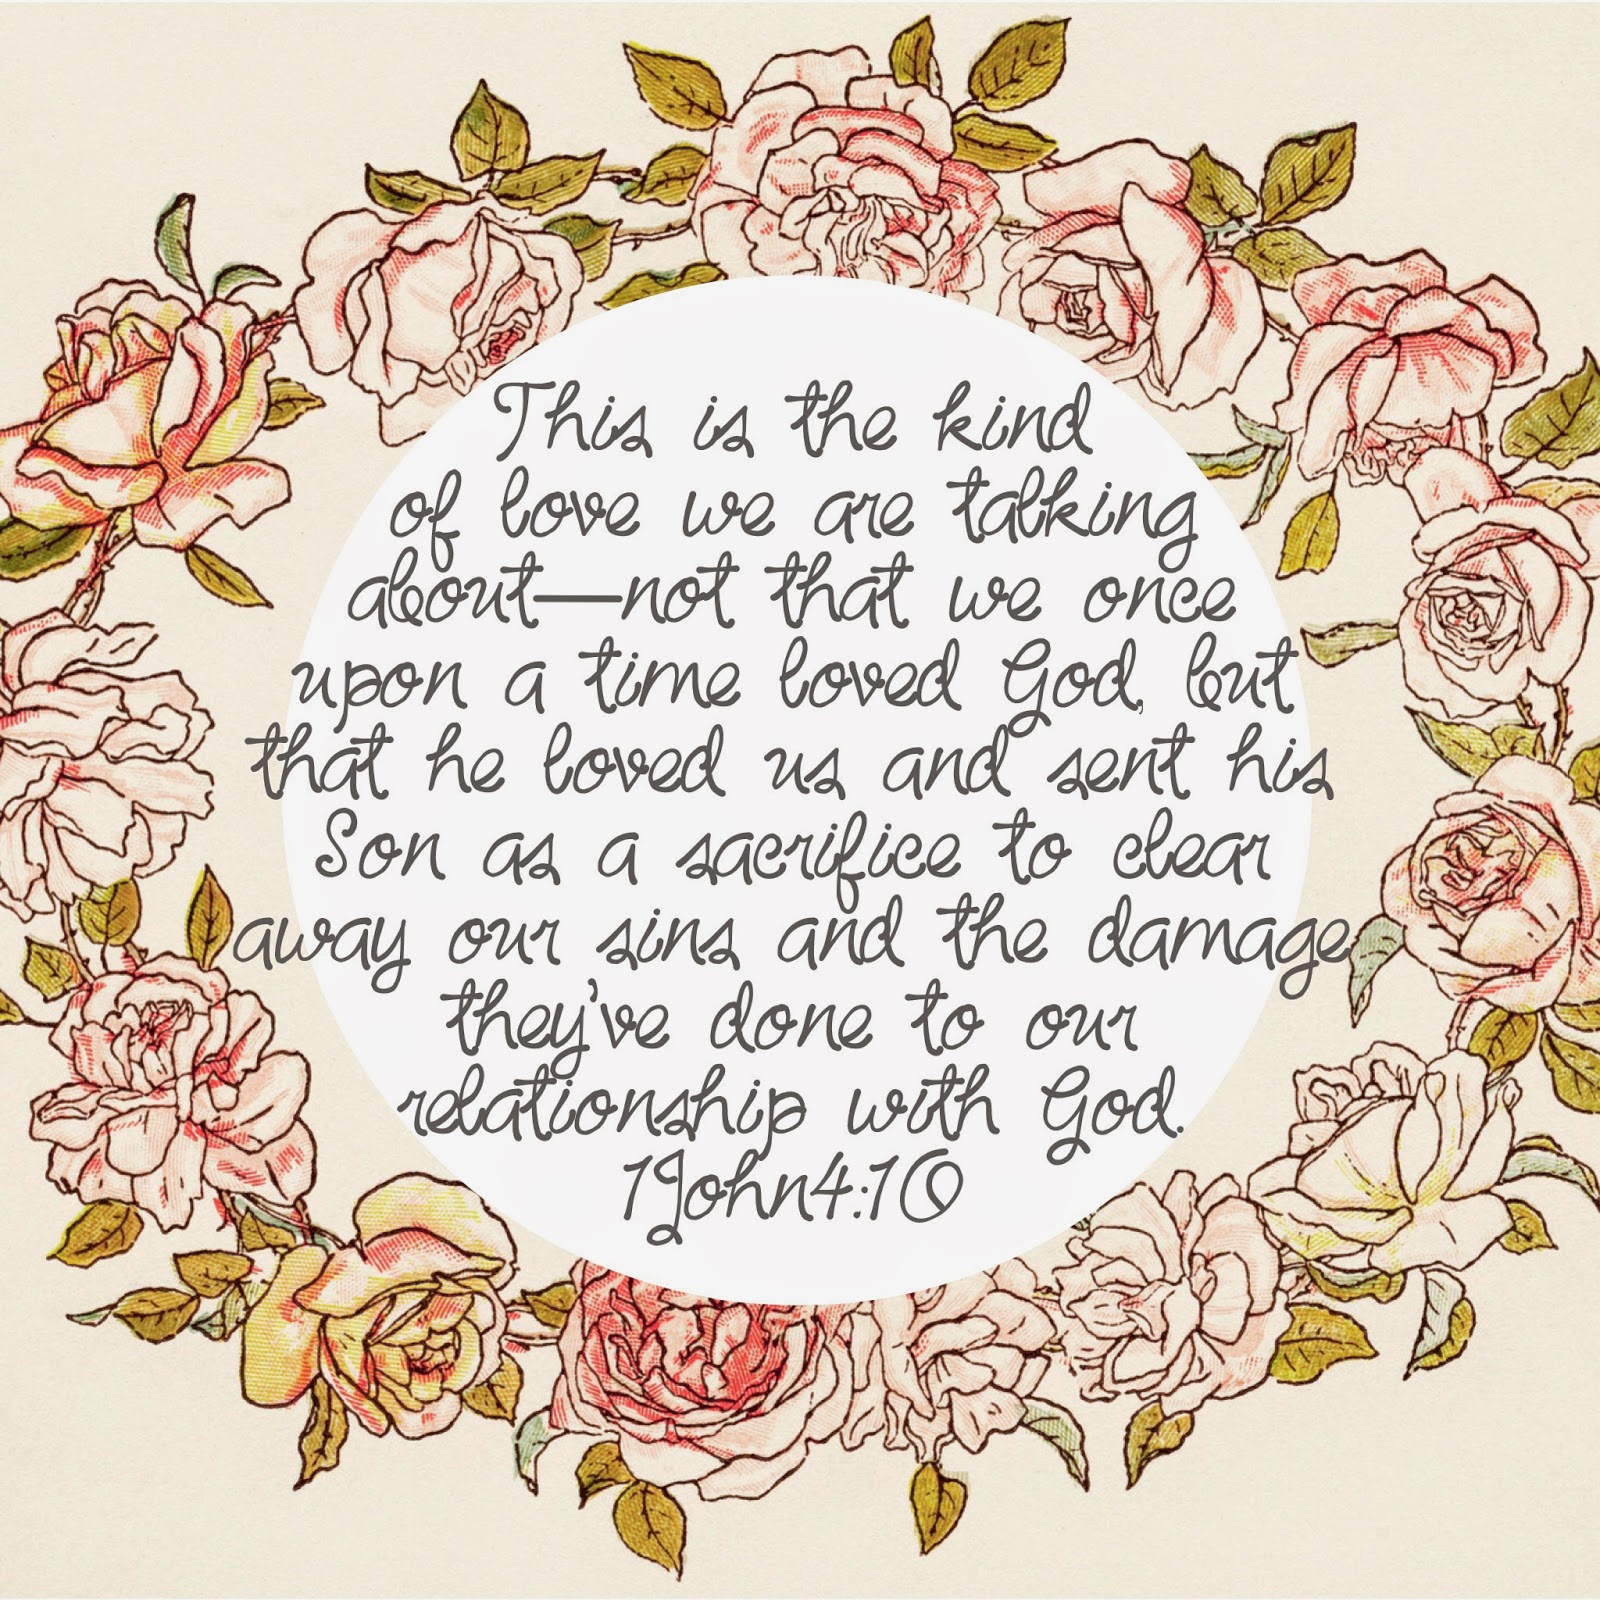 This is the kind
of love we are talking
about—not that we once
upon a time loved God, but
that he loved us and sent his
Son as a sacrifice to clear
away our sins and the damage
they've done to our
relationship with God.
1John4:10